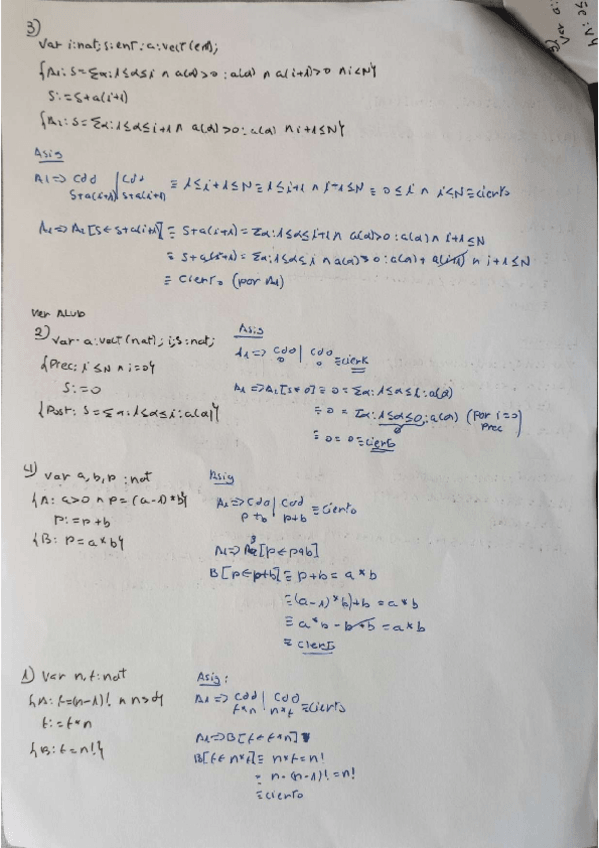 3)
Var i:nat; s:ent; a:vect(ent);
{A1: S=Σα:1≤α≤i ∧ a(α)>0 : a(α) ∧ a(i+1)>0 ∧ i<N}
S:=S+a(i+1)
{A2: S=Σα:1≤α≤i+1 ∧ a(α)>0 : a(α) ∧ i+1≤N}
Asig
A1 => Cdd | Cdd ≡ 1≤i+1≤N ≡ 1≤i+1 ∧ i+1≤N ≡ 0≤i ∧ i<N ≡ cierto
S+a(i+1) | S+a(i+1)
A1 => A2[S ← S+a(i+1)] ≡ S+a(i+1) = Σα:1≤α≤i+1 ∧ a(α)>0 : a(α) ∧ i+1≤N
≡ S+a(i+1) = Σα:1≤α≤i ∧ a(α)>0 : a(α) + a(i+1) ∧ i+1≤N
≡ Cierto (por A1)
2) Var a:vect(nat); i,s:nat;
{Prec: i≤N ∧ i=0}
S:=0
{Post: S=Σα:1≤α≤i:a(α)}
Asig
A1 => Cdd | Cdd ≡ cierto
0 | 0
A1 => A2[S←0] ≡ 0 = Σα:1≤α≤i:a(α)
≡ 0 = Σα:1≤α≤0:a(α) (por i=0)
Prec
0
≡ 0=0 ≡ cierto
4) Var a,b,p :nat
{A: a>0 ∧ p=(a-1)*b}
P:=p+b
{B: p=a*b}
Asig
A1 => Cdd | Cdd ≡ cierto
p+b | p+b
A1 => B[p←p+b]
B[p←p+b] ≡ p+b = a*b
≡ (a-1)*b)+b = a*b
≡ a*b-b+b = a*b
≡ cierto
1) Var n,t:nat
{A: t=(n-1)! ∧ n>0}
t:=t*n
{B: t=n!}
Asig:
A1 => Cdd | Cdd ≡ cierto
t*n | n*t
A1 => B[t←t*n]
B[t←n*t] ≡ n*t=n!
≡ n·(n-1)! = n!
≡ cierto